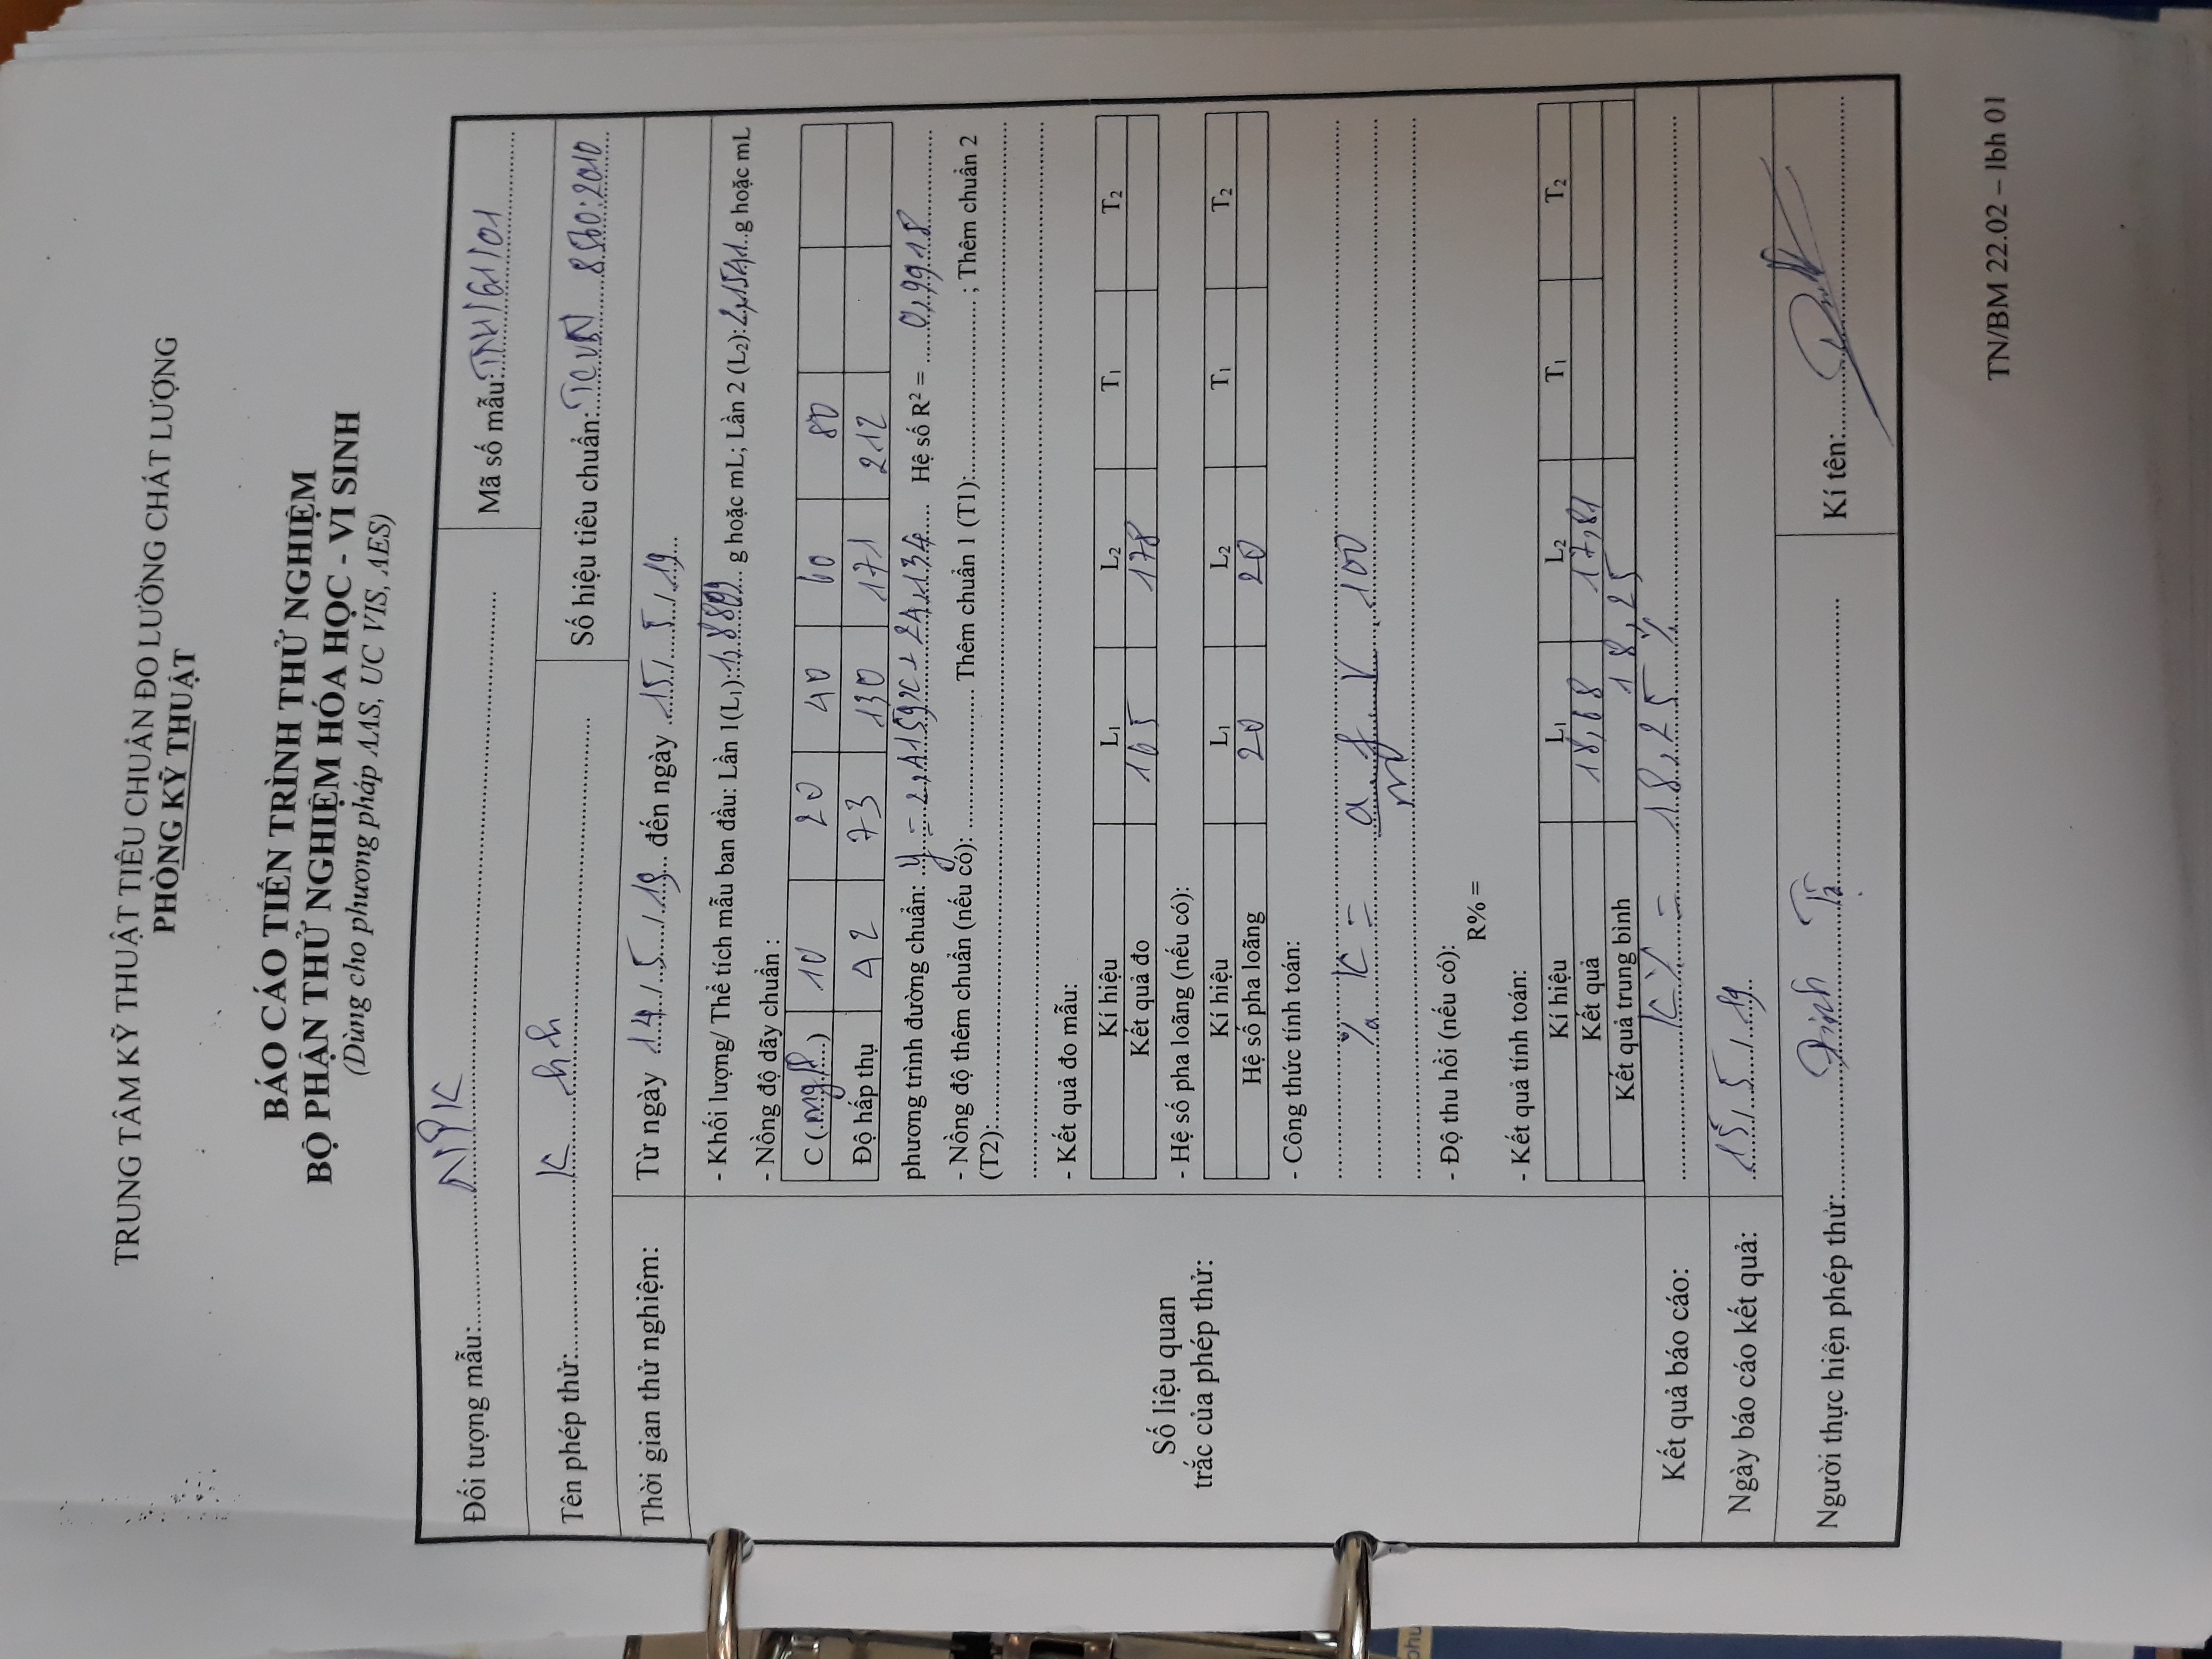 TRUNG TÂM KỸ THUẬT TIÊU CHUẨN ĐO LƯỜNG CHẤT LƯỢNG
PHÒNG KỸ THUẬT
BÁO CÁO TIẾN TRÌNH THỬ NGHIỆM
BỘ PHẬN THỬ NGHIỆM HÓA HỌC - VI SINH
(Dùng cho phương pháp AAS, UC VIS, AES)
Đối tượng mẫu: NPK Mã số mẫu: TNH/61/01
Tên phép thử: K hh Số hiệu tiêu chuẩn: TCVN 8560:2010
Thời gian thử nghiệm: Từ ngày 14/5/19 đến ngày 15/5/19
- Khối lượng/ Thể tích mẫu ban đầu: Lần 1(L₁): 1,8809 g hoặc mL; Lần 2 (L₂): 2,1541 g hoặc mL
- Nồng độ dãy chuẩn :
C (mg/l) 10 20 40 60 80
Độ hấp thụ 42 73 130 171 212
phương trình đường chuẩn: y = 2,4159x + 24,134 Hệ số R² = 0,9918
- Nồng độ thêm chuẩn (nếu có): Thêm chuẩn 1 (T1): ; Thêm chuẩn 2
(T2):
- Kết quả đo mẫu:
Kí hiệu L₁ L₂ T₁ T₂
Kết quả đo 165 178
Số liệu quan
trắc của phép thử:
- Hệ số pha loãng (nếu có):
Kí hiệu L₁ L₂ T₁ T₂
Hệ số pha loãng 20 20
- Công thức tính toán:
% K = a . f . V . 100
m
- Độ thu hồi (nếu có):
R% =
- Kết quả tính toán:
Kí hiệu L₁ L₂ T₁ T₂
Kết quả 18,68 17,81
Kết quả trung bình 18,25
Kết quả báo cáo: K% = 18,25 %
Ngày báo cáo kết quả: 15/5/19
Người thực hiện phép thử: Đinh Kí tên:
TN/BM 22.02 – lbh 01
phu